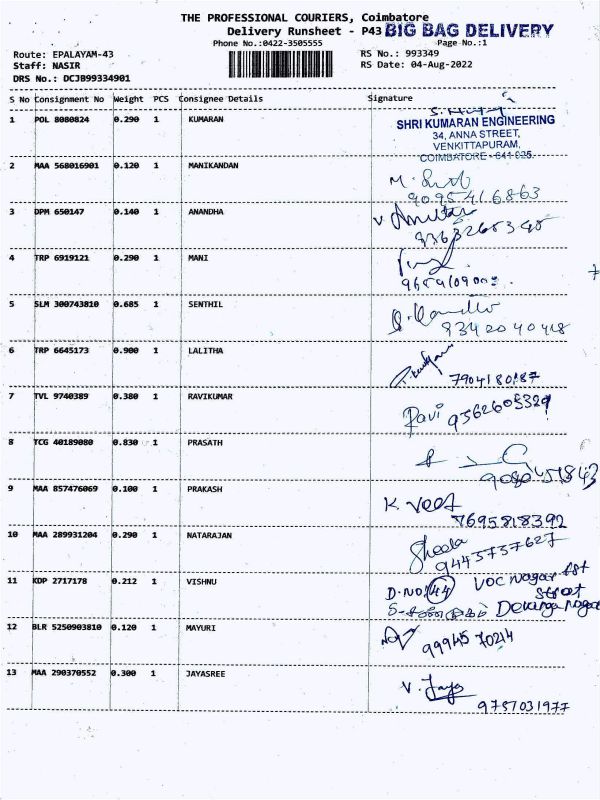 THE PROFESSIONAL COURIERS, Coimbatore
Delivery Runsheet - P43 BIG BAG DELIVERY
Phone No.:0422-3505555 Page No.:1
Route: EPALAYAM-43 RS No.: 993349
Staff: NASIR RS Date: 04-Aug-2022
DRS No.: DCJB99334901
S No Consignment No Weight PCS Consignee Details Signature
1 POL 8080824 0.290 1 KUMARAN
SHRI KUMARAN ENGINEERING
34, ANNA STREET,
VENKITTAPURAM,
COIMBATORE - 641 025.
2 MAA 568016901 0.120 1 MANIKANDAN
9095416863
3 DPM 650147 0.140 1 ANANDHA
4 TRP 6919121 0.290 1 MANI
5 SLM 300743810 0.685 1 SENTHIL
9342040418
6 TRP 6645173 0.900 1 LALITHA
7904180187
7 TVL 9740389 0.380 1 RAVIKUMAR
Ravi 9562605329
8 TCG 40189080 0.830 1 PRASATH
9 MAA 857476069 0.100 1 PRAKASH
K. Veet
7695818392
10 MAA 289931204 0.290 1 NATARAJAN
Sheela
9443737627
11 KDP 2717178 0.212 1 VISHNU
D.NO:44 VOC nagar 1st
Street
Devanga nagar
12 BLR 5250903810 0.120 1 MAYURI
9994570214
13 MAA 290370552 0.300 1 JAYASREE
V. Jaya
9757031977